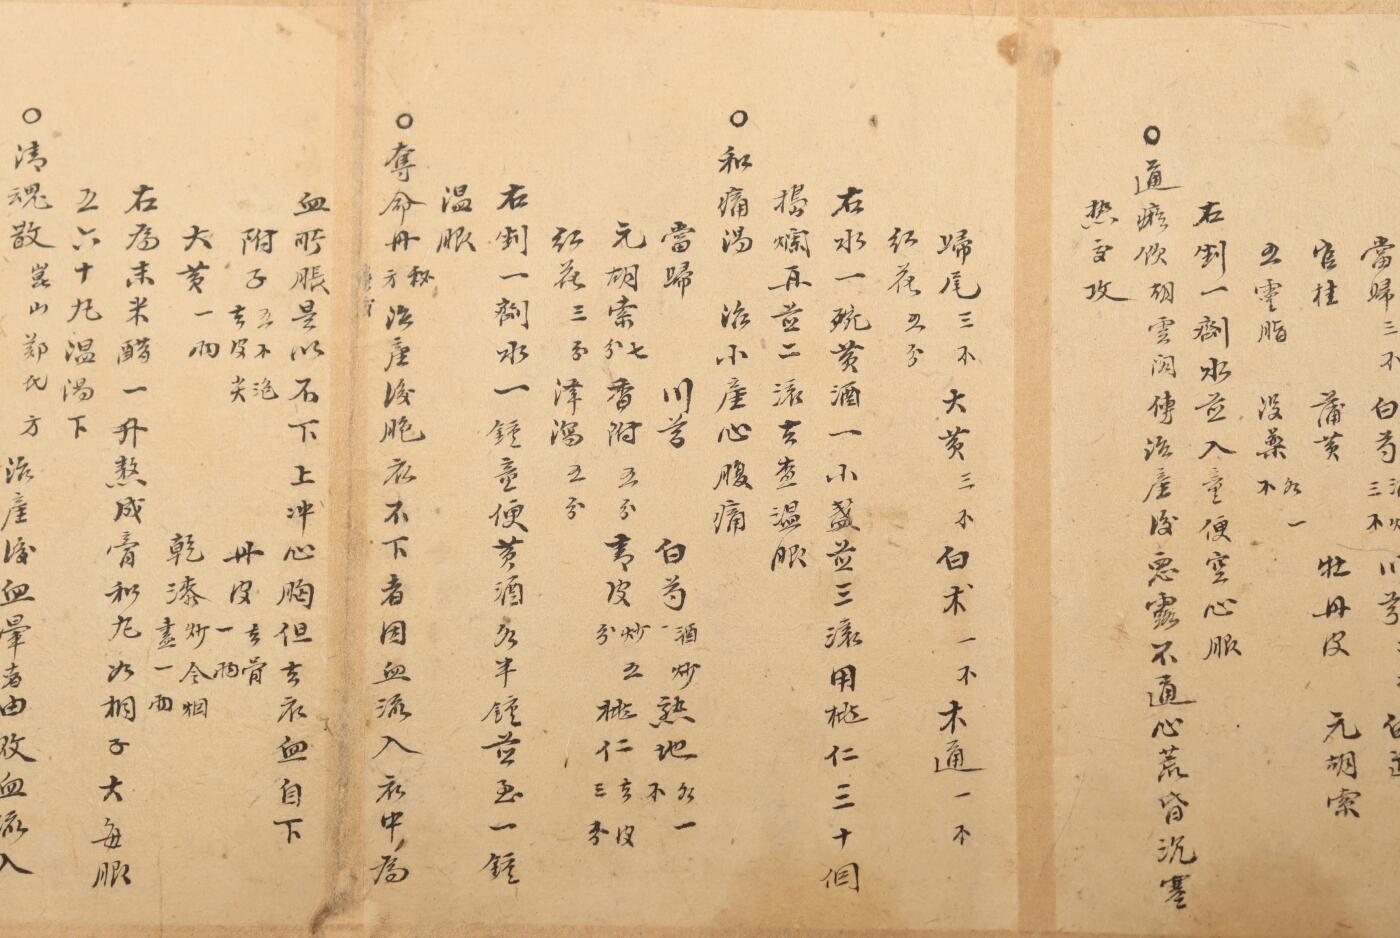 當歸三不 白芍酒炒三不 川芎 白
官桂 蒲黄 牡丹皮 元胡索
五霊脂 没藥各一不
右剉一劑水並入童便空心服
○通瘀飲胡雲閣傳治產後惡露不通心荒昏沉寒
熱交攻
歸尾三不 大黄三不 白术一不 木通一不
紅花五分
右水一碗黄酒一小盞並三滚用桃仁三十個
搗爛再並二滚去查温服
○和痛湯 治小產心腹痛
當歸 川芎 白芍酒炒 熟地各一不
元胡索七分 香附五分 青皮炒五分 桃仁去皮三分
紅花三分 澤瀉五分
右剉一劑水一鍾童便黄酒各半鍾並至一鍾
温服
○奪命丹秘方 治產後胞衣不下者因血流入衣中為
血所脹是以不下上冲心胸但去衣血自下
附子五不泡去皮尖 丹皮去骨一両
大黄一両 乾漆炒令烟盡一両
右為末米醋一升熬成膏和丸如桐子大每服
五六十丸温湯下
○清魂散崑山鄭氏方 治產後血暈者由敗血流入